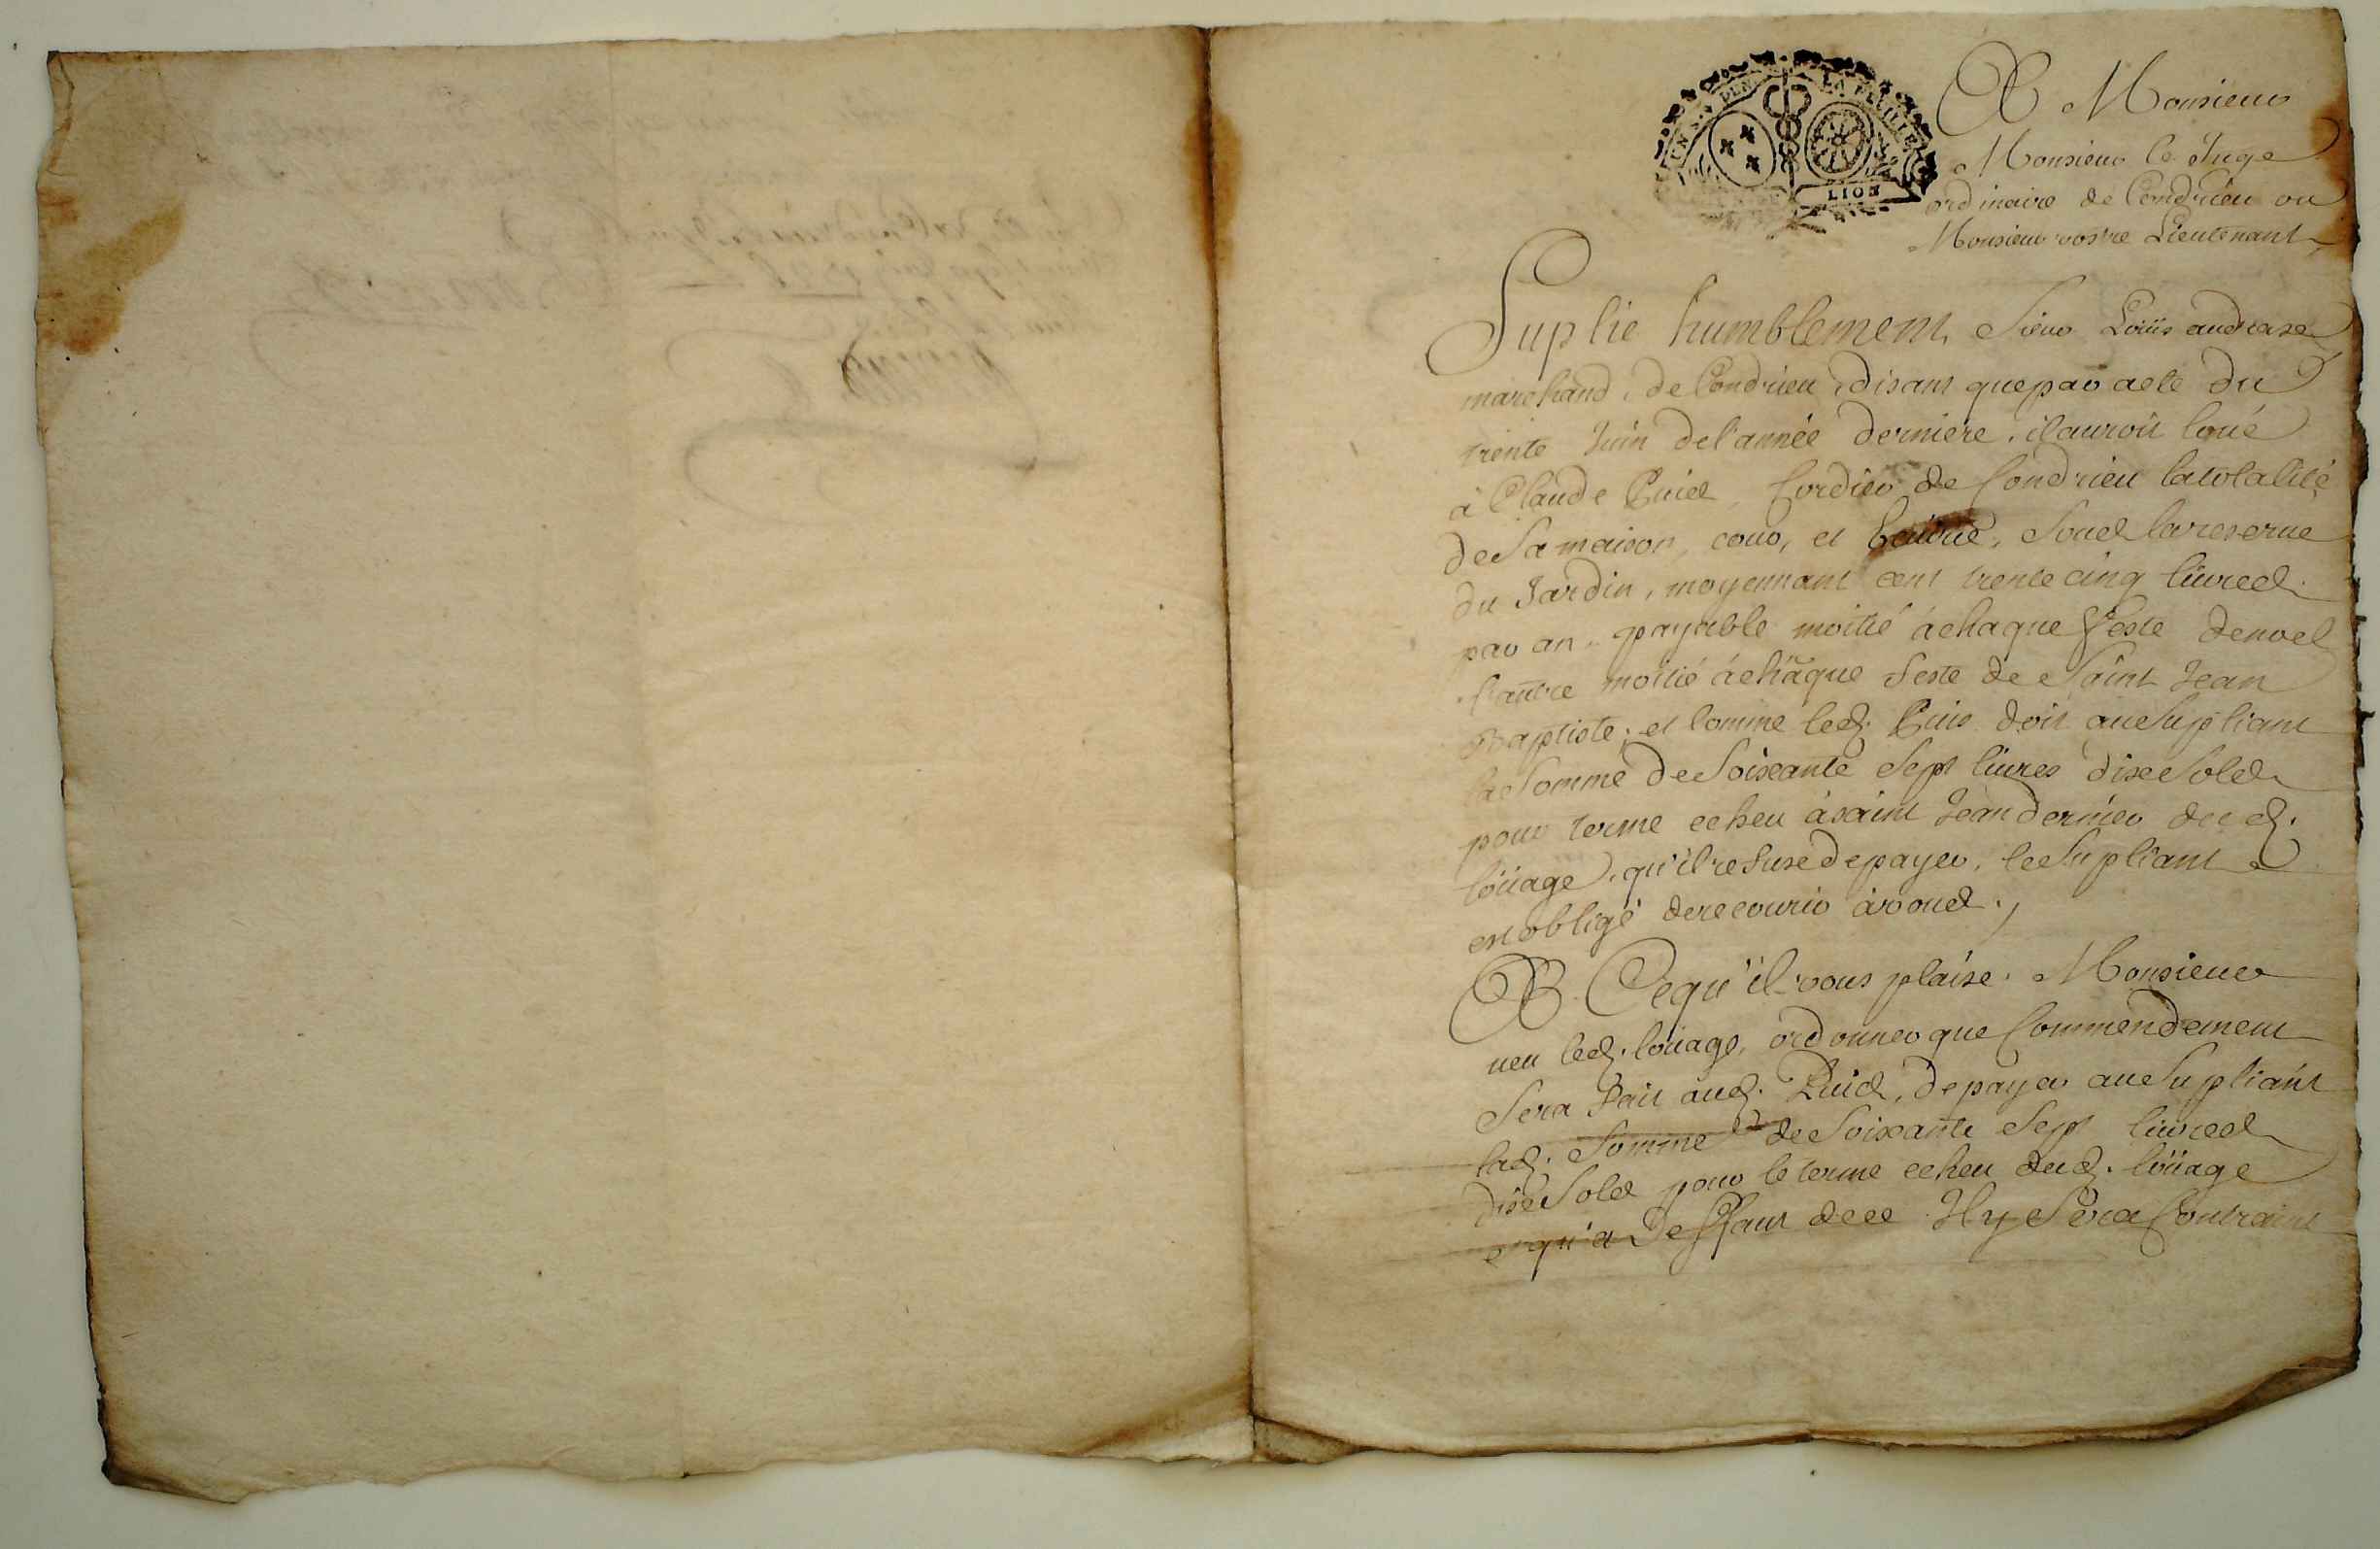 UN S. DEN. LA FEUILLE
LION
A Monsieur
Monsieur le Juge
ordinaire de Condrieu ou
Monsieur vostre Lieutenant
Suplie humblement Sieur Loüis andrase
marchand, de Condrieu, disant que par acte du
trente Juin de l'année derniere, il auroit loüé
à Claude Puis Cordier de Condrieu la totalité
de Sa maison, cour, et, Sous la reserue
du Jardin, moyennant cent trente cinq liures
par an, payable moitié à chaque feste de noel
l'autre moitié à chaque feste de Saint Jean
Baptiste; et Comme led. Puis doit au Supliant
la Somme de Soixante Sept liures dixe Sols
pour terme echeu à saint Jean dernier dud.
loüage, qu'il refuse de payer, le Supliant
est obligé de recourir à vous.,
A Ce qu'il vous plaise, Monsieur
ueu led. loüage, ordonner que Commendement
Sera fait aud. Puis, de payer au Supliant
lad. Somme de Soixante Sept liures
dixe Sols pour le terme echeu dud. loüage
qu'a deffaut de ce Il y Sera Contraint